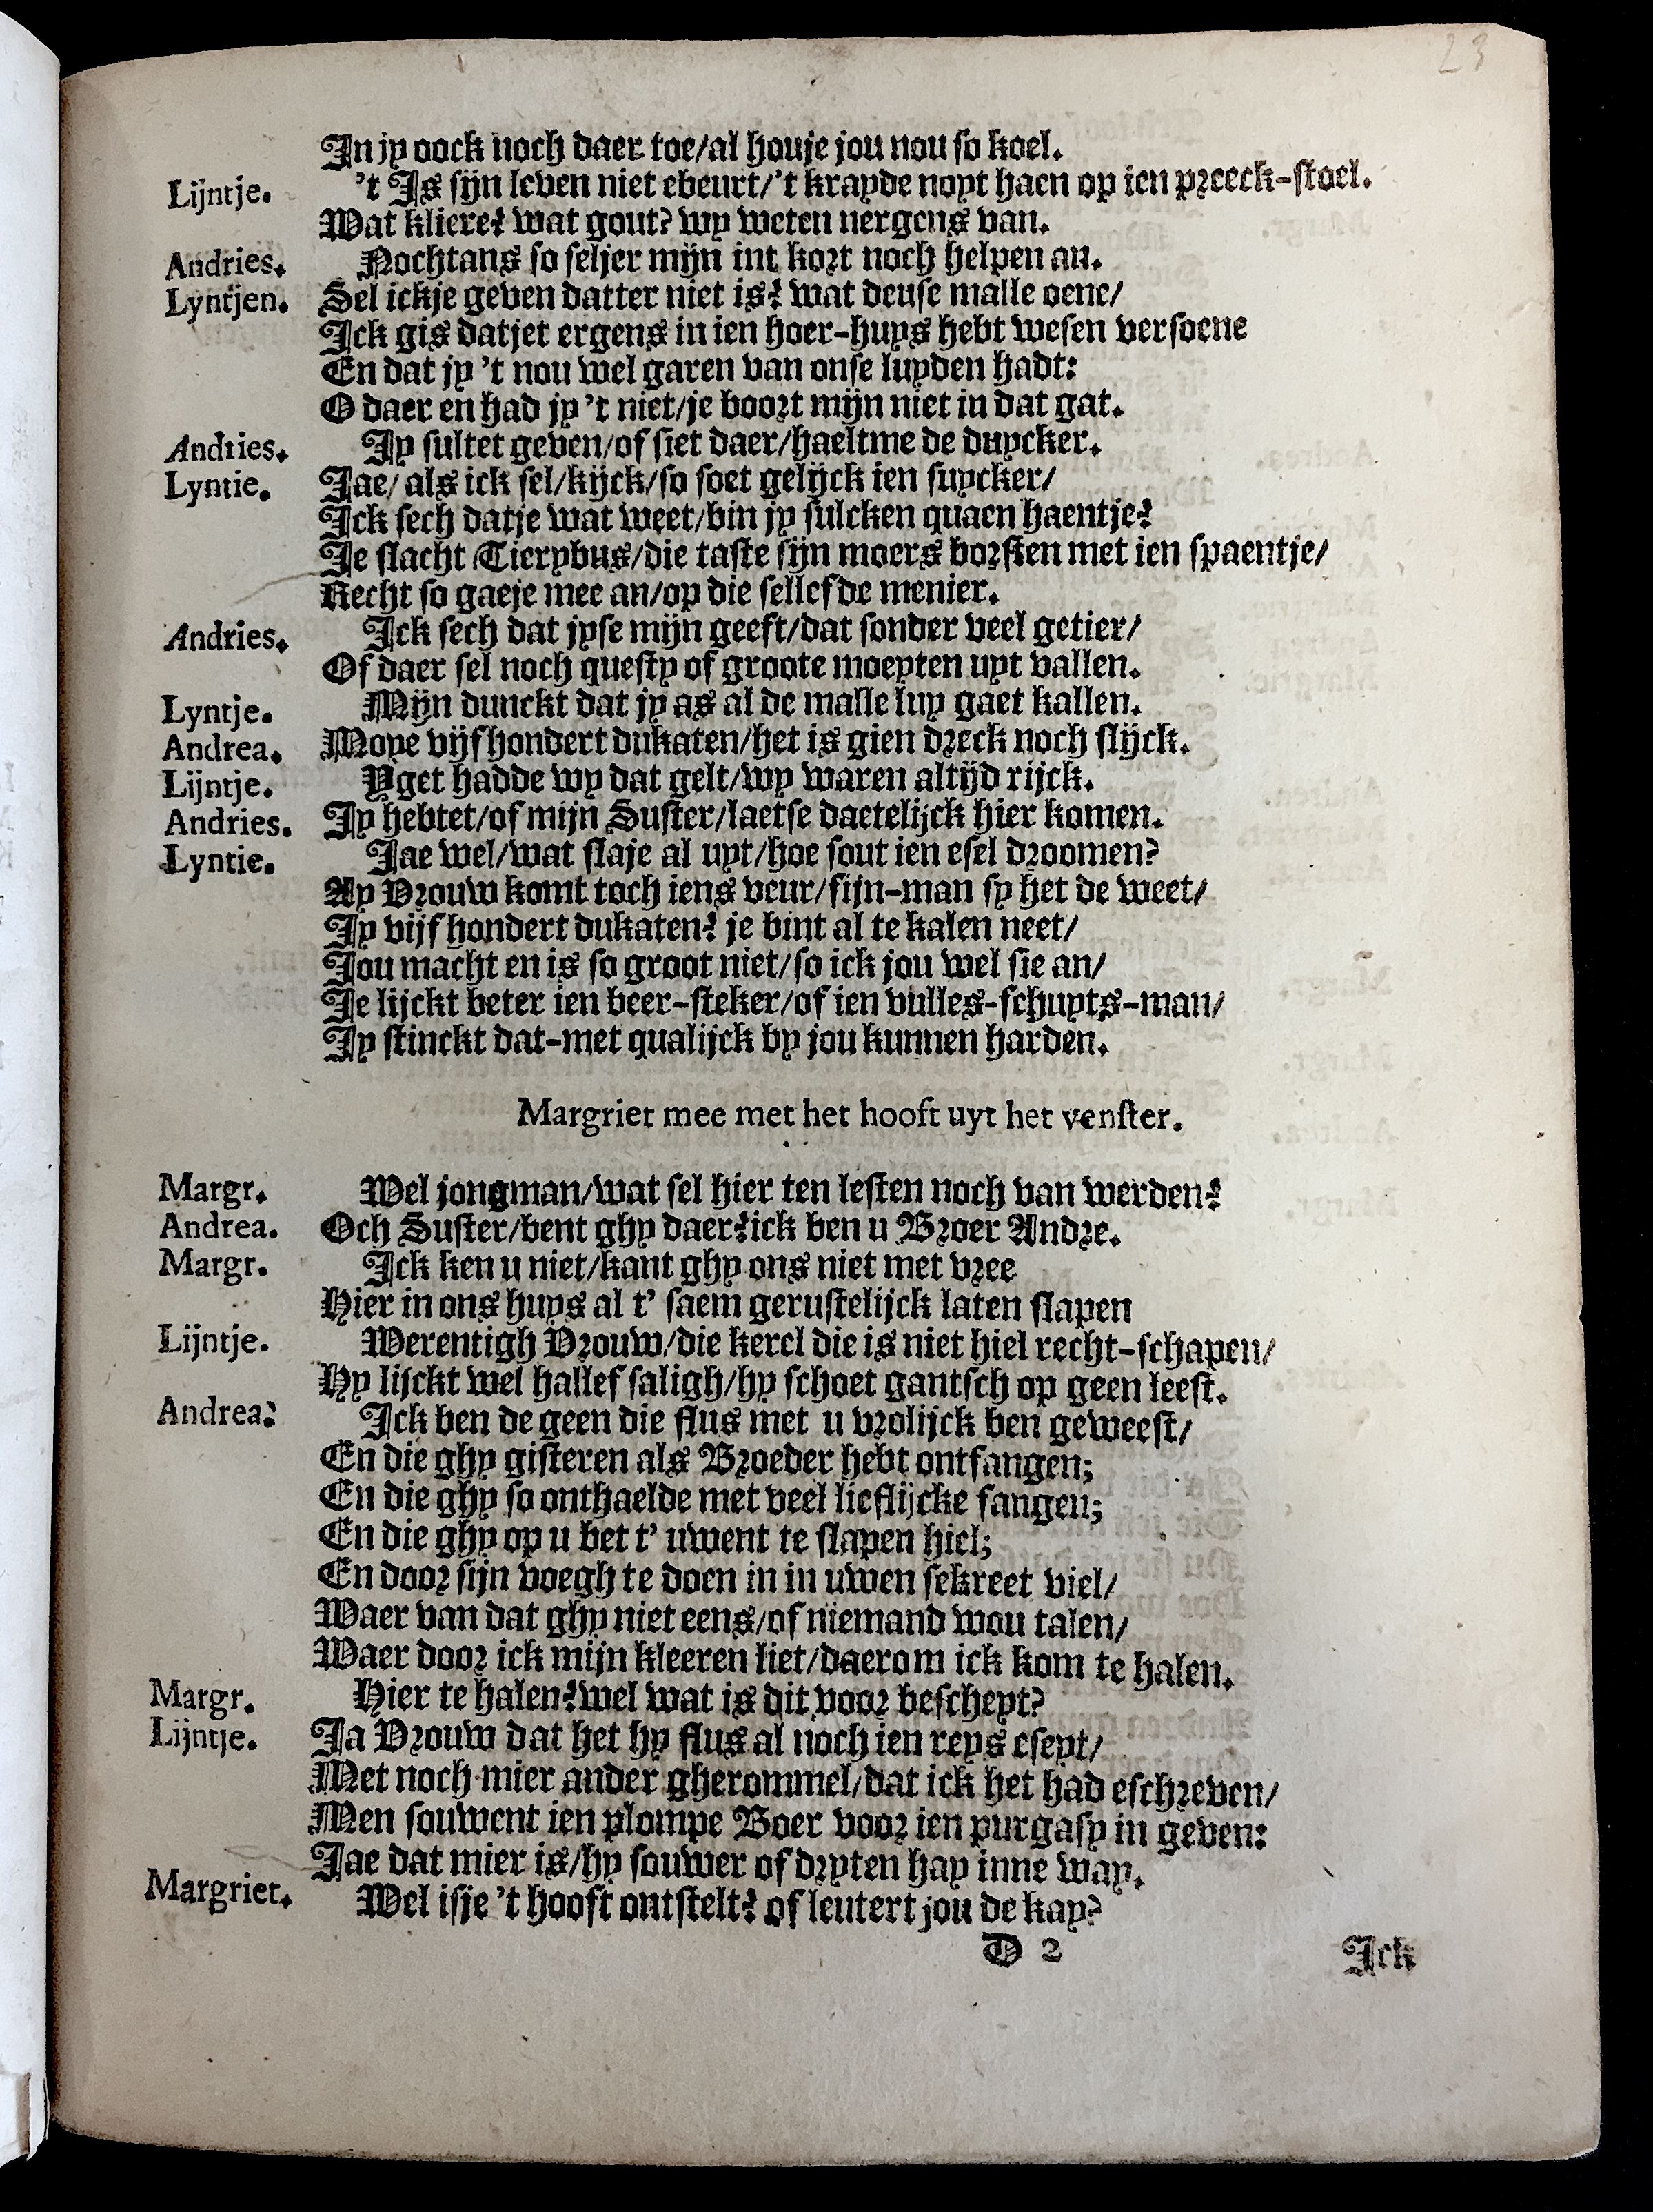 23
In jy oock noch daer toe/al houje jou nou so koel.
Lijntje. 't Is sijn leven niet ebeurt/'t krayde noyt haen op ien preeck-stoel.
Wat kliere? wat gout? wy weten nergens van.
Andries. Nochtans so seljer mijn int kort noch helpen an.
Lyntjen. Sel ickje geven datter niet is? wat deuse malle oene/
Ick gis datjet ergens in ien hoer-huys hebt wesen versoene
En dat jy 't nou wel garen van onse luyden hadt:
O daer en had jy 't niet/je boort mijn niet in dat gat.
Andries. Jy sultet geven/of siet daer/haeltme de duycker.
Lyntie. Jae/als ick sel/kijck/so soet gelijck ien suycker/
Ick sech datje wat weet/bin jy sulcken quaen haentje?
Je slacht Tierybus/die taste sijn moers borsten met ien spaentje/
Recht so gaeje mee an/op die sellefde menier.
Andries. Ick sech dat jyse mijn geeft/dat sonder veel getier/
Of daer sel noch questy of groote moeyten uyt vallen.
Lyntje. Mijn dunckt dat jy as al de malle luy gaet kallen.
Andrea. Moye vijfhondert dukaten/het is gien dreck noch slijck.
Lijntje. Yget hadde wy dat gelt/wy waren altijd rijck.
Andries. Jy hebtet/of mijn Suster/laetse daetelijck hier komen.
Lyntie. Jae wel/wat slaje al uyt/hoe sout ien esel droomen?
Ay Vrouw komt toch iens veur/sijn-man sy het de weet/
Jy vijf hondert dukaten? je bint al te kalen neet/
Jou macht en is so groot niet/so ick jou wel sie an/
Je lijckt beter ien beer-steker/of ien vulles-schuyts-man/
Jy stinckt dat-met qualijck by jou kunnen harden.
Margriet mee met het hooft uyt het venster.
Margr. Wel jongman/wat sel hier ten lesten noch van werden?
Andrea. Och Suster/bent ghy daer?ick ben u Broer Andre.
Margr. Ick ken u niet/kant ghy ons niet met vree
Hier in ons huys al t' saem gerustelijck laten slapen
Lijntje. Werentigh Vrouw/die kerel die is niet hiel recht-schapen/
Hy lijckt wel hallef saligh/hy schoet gantsch op geen leest.
Andrea: Ick ben de geen die flus met u vrolijck ben geweest/
En die ghy gisteren als Broeder hebt ontfangen;
En die ghy so onthaelde met veel lieflijcke sangen;
En die ghy op u bet t' uwent te slapen hiel;
En door sijn voegh te doen in in uwen sekreet viel/
Waer van dat ghy niet eens/of niemand wou talen/
Waer door ick mijn kleeren liet/daerom ick kom te halen.
Margr. Hier te halen?wel wat is dit voor bescheyt?
Lijntje. Ja Vrouw dat het hy flus al noch ien reys eseyt/
Met noch mier ander gherommel/dat ick het had eschreven/
Men souwent ien plompe Boer voor ien purgasy in geven:
Jae dat mier is/hy souwer of dryten hay inne way.
Margriet. Wel isje 't hooft ontstelt? of leutert jou de kay?
D 2
Ick